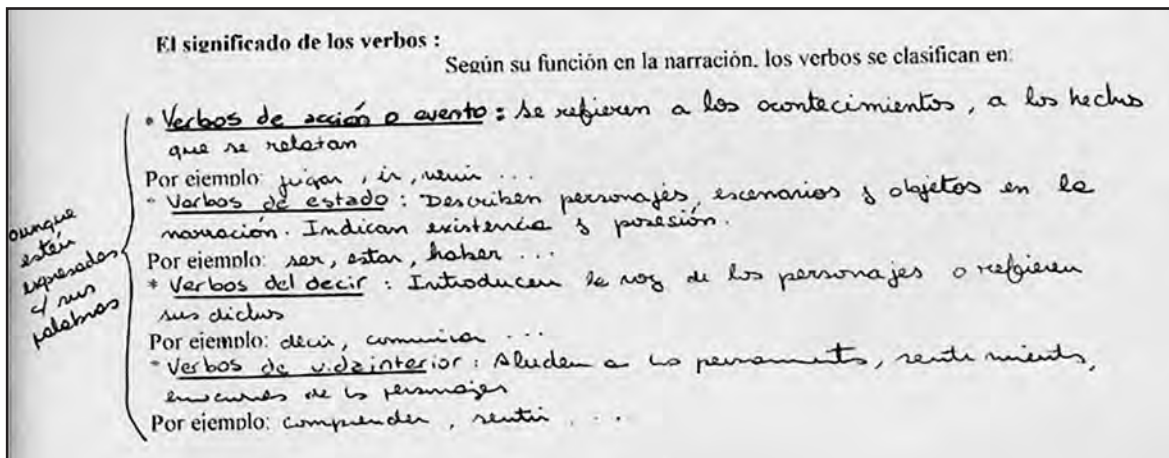 El significado de los verbos :
Según su función en la narración, los verbos se clasifican en:
• Verbos de acción o evento : Se refieren a los acontecimientos, a los hechos
que se relatan
Por ejemplo: jugar, ir, venir ...
* Verbos de estado : Describen personajes, escenarios y objetos en la
narración. Indican existencia y posesión.
Por ejemplo: ser, estar, haber ...
* Verbos del decir : Introducen la voz de los personajes o refieren
sus dichos
Por ejemplo: decir, comunicar ...
* Verbos de vida interior : Aluden a los pensamientos, sentimientos,
emociones de los personajes
Por ejemplo: comprender, sentir ...
aunque
estén
expresados
c/ sus
palabras